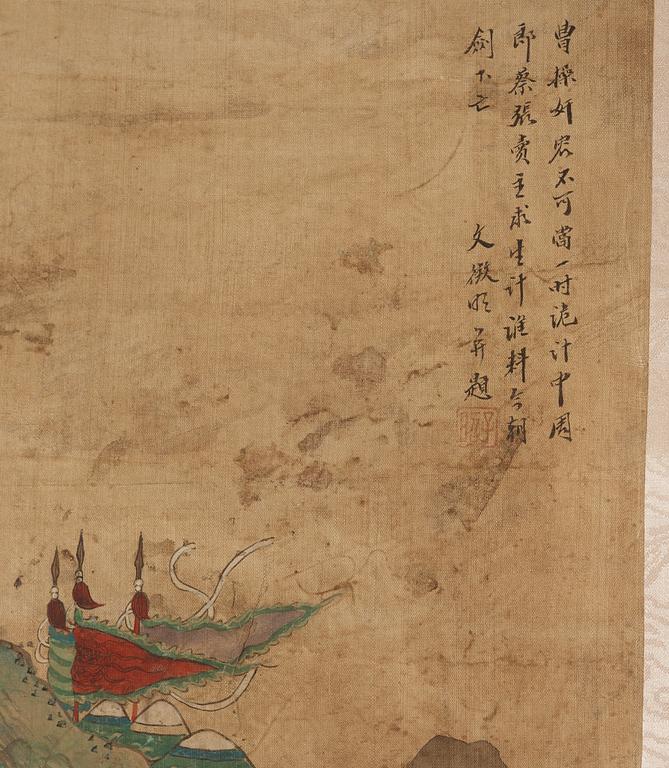 曹操奸宄不可當一时詭计中周
郎蔡張賣主求生计誰料今朝
劍下亡
文徵明并題